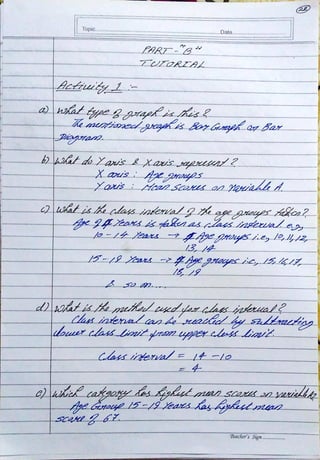 28
Topic
Date
PART - "B"
TUTORIAL
Activity 1 :-
a) What type of graph is this?
The mentioned graph is Bar Graph or Bar
Diagram.
b) What do Y axis & X axis represent?
X axis : Age groups
Y axis : Mean Scores on Variable A.
c) What is the class interval of the age groups taken?
Age of 4 Years is taken as class interval e.g,
10 - 14 Years → 4 Age groups i.e, 10, 11, 12,
13, 14
15 - 19 Years → 4 Age groups i.e, 15, 16, 17,
18, 19
& so on....
d) What is the method used for class interval?
Class interval can be reached by subtracting
lower class limit from upper class limit.
Class interval = 14 - 10
= 4
e) Which category has highest mean scores on variable A?
Age Group 15 - 19 Years has highest mean
score of 67.
Teacher's Sign